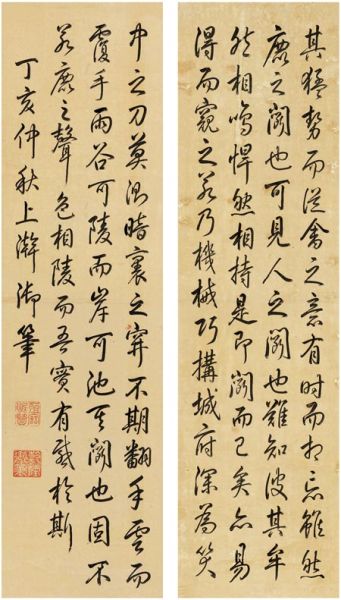 其猛勢而從舍之意有時而相忘雖然
鹿之鬪也可見人之鬪也難知彼其牟
然相鳴悍然相持是即鬪而已矣亦易
得而窺之若乃機械巧搆城府深為笑
中之刀莫測暗裏之穽不期翻手雲而
覆手雨谷可陵而岸可池其鬪也固不
若鹿之聲色相陵而吾實有感於斯
丁亥仲秋上澣御筆